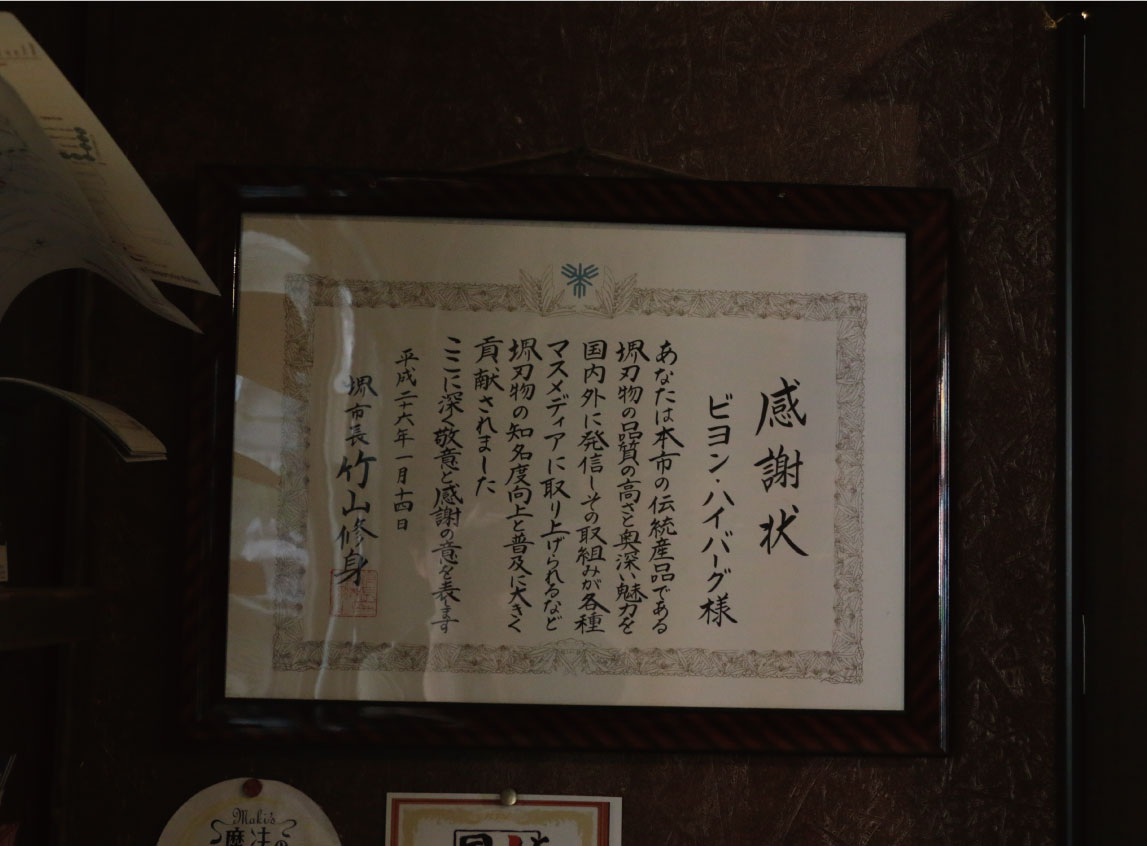 感謝状
ビヨン・ハイバーグ様
あなたは本市の伝統産品である
堺刃物の品質の高さと奥深い魅力を
国内外に発信しその取組みが各種
マスメディアに取り上げられるなど
堺刃物の知名度向上と普及に大きく
貢献されました
ここに深く敬意と感謝の意を表します
平成二十六年一月十四日
堺市長 竹山修身
Maki's
魔法の